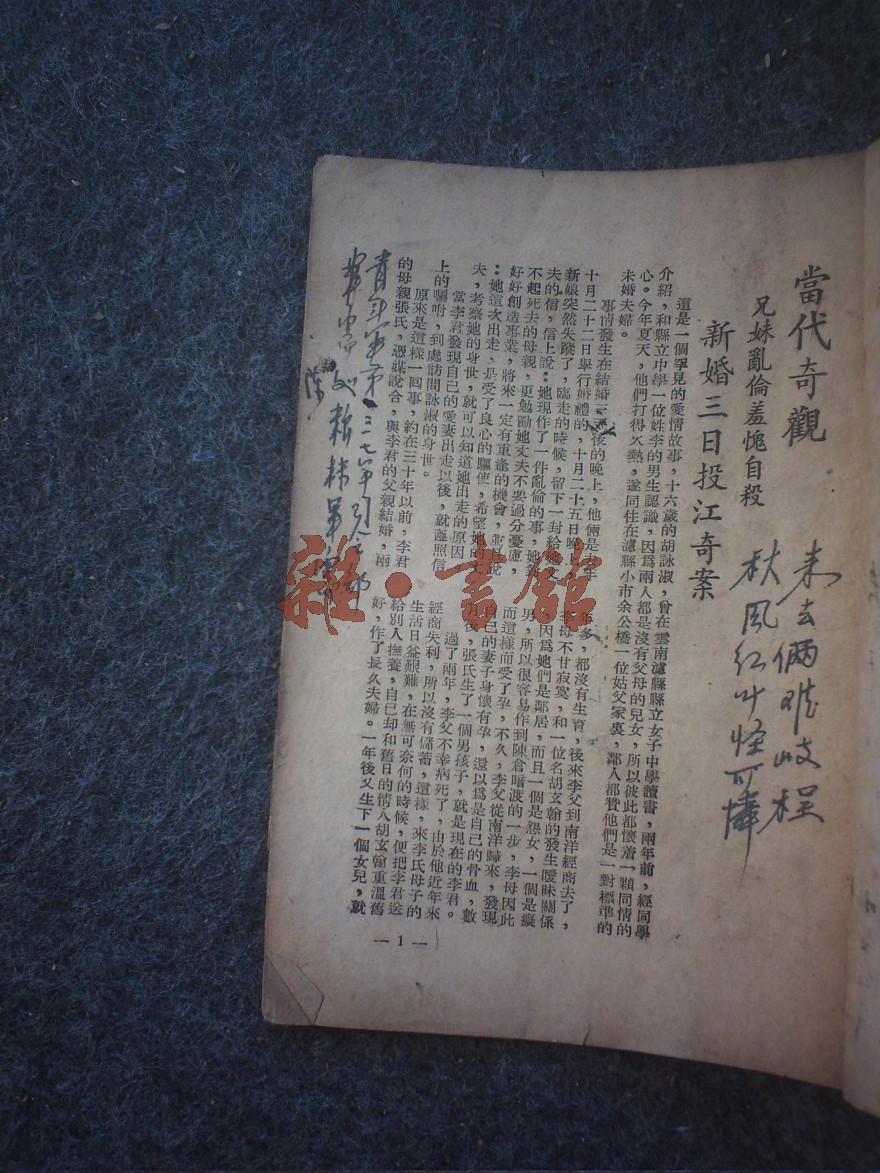 來去倆难岐程
秋風红叶怪可憐
當代奇觀
兄妹亂倫羞愧自殺
新婚三日投江奇案
這是一個罕見的愛情故事，十六歲的胡詠淑，曾在雲南瀘縣縣立女子中學讀書，兩年前，經同學
介紹，和縣立中學一位姓李的男生認識，因爲兩人都是沒有父母的兒女，所以彼此都懷着一顆同情的
心。今年夏天，他們打得火熱，遂同住在瀘縣小市余公橋一位姑父家裏，鄰人都贊他們是一對標準的
未婚夫婦。
事情發生在結婚三日後的晚上，他倆是去年
十月二十二日舉行婚禮的，十月二十五日晚上，
新娘突然失蹤了，臨走的時候，留下一封給她丈
夫的信，信上說：她現作了一件亂倫的事，她對
不起死去的母親，更勉勵她丈夫不要過分憂慮，
好好創造事業，將來一定有重逢的機會，並且說
：她這次出走，是受了良心的驅使，希望她的丈
夫，考察她的身世，就可以知道她出走的原因
當李君發現自己的愛妻出走以後，就遵照信
上的囑咐，到處訪問詠淑的身世。
原來是這樣一回事，約在三十年以前，李君
的母親張氏，憑媒說合，與李君的父親結婚，兩
年多，都沒有生育，後來李父到南洋經商去了，
李母不甘寂寞，和一位名胡玄翰的發生曖昧關係
因爲她們是鄰居，而且一個是怨女，一個是癡
男，所以很容易作到陳倉暗渡的一步，李母因此
而這樣而受了孕，不久，李父從南洋歸來，發現
自己的妻子身懷有孕，還以爲是自己的骨血，數
月後，張氏生了一個男孩子，就是現在的李君。
過了兩年，李父不幸病死了，由於他近年來
經商失利，所以沒有儲蓄，這樣，來李氏母子的
生活日益艱難，在無可奈何的時候，便把李君送
給別人撫養，自已却和舊日的情人胡玄翰重溫舊
好，作了長久夫婦。一年後又生下一個女兒，就
青年軍
陳
— 1 —
雜·書館